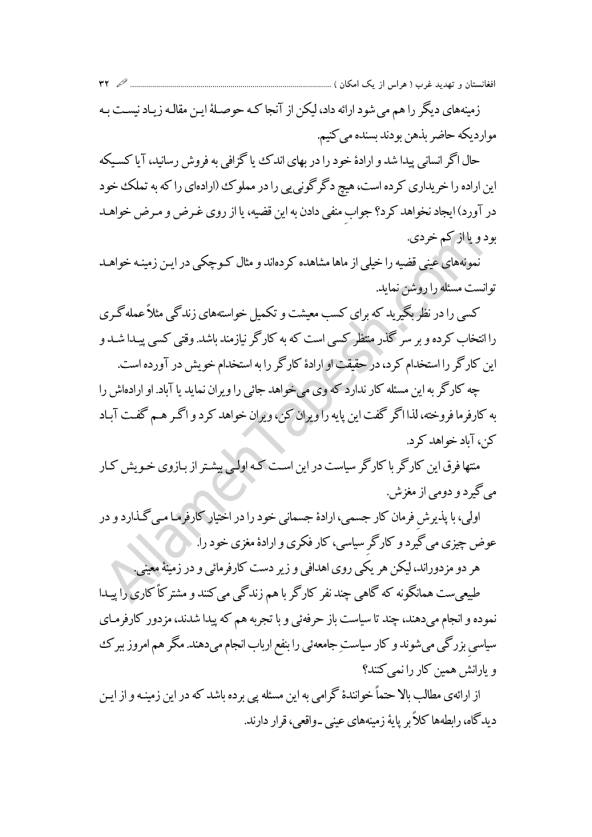 افغانستان و تهدید غرب ( هراس از یک امکان ) ........................................................................................ ۳۲
زمینه‌های دیگر را هم می‌شود ارائه داد، لیکن از آنجا کـه حوصلۀ ایـن مقالـه زیـاد نیسـت بـه
مواردیکه حاضر بذهن بودند بسنده می‌کنیم.
حال اگر انسانی پیدا شد و ارادۀ خود را در بهای اندک یا گزافی به فروش رسانید، آیا کسیکه
این اراده را خریداری کرده است، هیچ دگرگونی‌یی را در مملوک (اراده‌ای را که به تملک خود
در آورد) ایجاد نخواهد کرد؟ جوابِ منفی دادن به این قضیه، یا از روی غـرض و مـرض خواهـد
بود و یا از کم خردی.
نمونه‌های عینی قضیه را خیلی از ماها مشاهده کرده‌اند و مثال کـوچکی در ایـن زمینـه خواهـد
توانست مسئله را روشن نماید.
کسی را در نظر بگیرید که برای کسب معیشت و تکمیل خواسته‌های زندگی مثلاً عمله‌گـری
را انتخاب کرده و بر سر گذر منتظر کسی است که به کارگر نیازمند باشد. وقتی کسی پیـدا شـد و
این کارگر را استخدام کرد، در حقیقت او ارادۀ کارگر را به استخدام خویش در آورده است.
چه کارگر به این مسئله کار ندارد که وی می‌خواهد جائی را ویران نماید یا آباد. او اراده‌اش را
به کارفرما فروخته، لذا اگر گفت این پایه را ویران کن، ویران خواهد کرد و اگـر هـم گفـت آبـاد
کن، آباد خواهد کرد.
منتها فرق این کارگر با کارگر سیاست در این اسـت کـه اولـی بیشـتر از بـازوی خـویش کـار
می‌گیرد و دومی از مغزش.
اولی، با پذیرشِ فرمان کار جسمی، ارادۀ جسمانی خود را در اختیار کارفرمـا مـی‌گـذارد و در
عوض چیزی می‌گیرد و کارگرِ سیاسی، کار فکری و ارادۀ مغزی خود را.
هر دو مزدوراند، لیکن هر یکی روی اهدافی و زیر دست کارفرمائی و در زمینۀ معینی.
طبیعی‌ست همانگونه که گاهی چند نفر کارگر با هم زندگی می‌کنند و مشترکاً کاری را پیـدا
نموده و انجام می‌دهند، چند تا سیاست باز حرفه‌ئی و با تجربه هم که پیدا شدند، مزدور کارفرمـای
سیاسیِ بزرگی می‌شوند و کار سیاستِ جامعه‌ئی را بنفع ارباب انجام می‌دهند. مگر هم امروز ببرک
و یارانش همین کار را نمی‌کنند؟
از ارائه‌ی مطالب بالا حتماً خوانندۀ گرامی به این مسئله پی برده باشد که در این زمینـه و از ایـن
دیدگاه، رابطه‌ها کلاً بر پایۀ زمینه‌های عینی ـ واقعی، قرار دارند.
AllamehTabesh.com